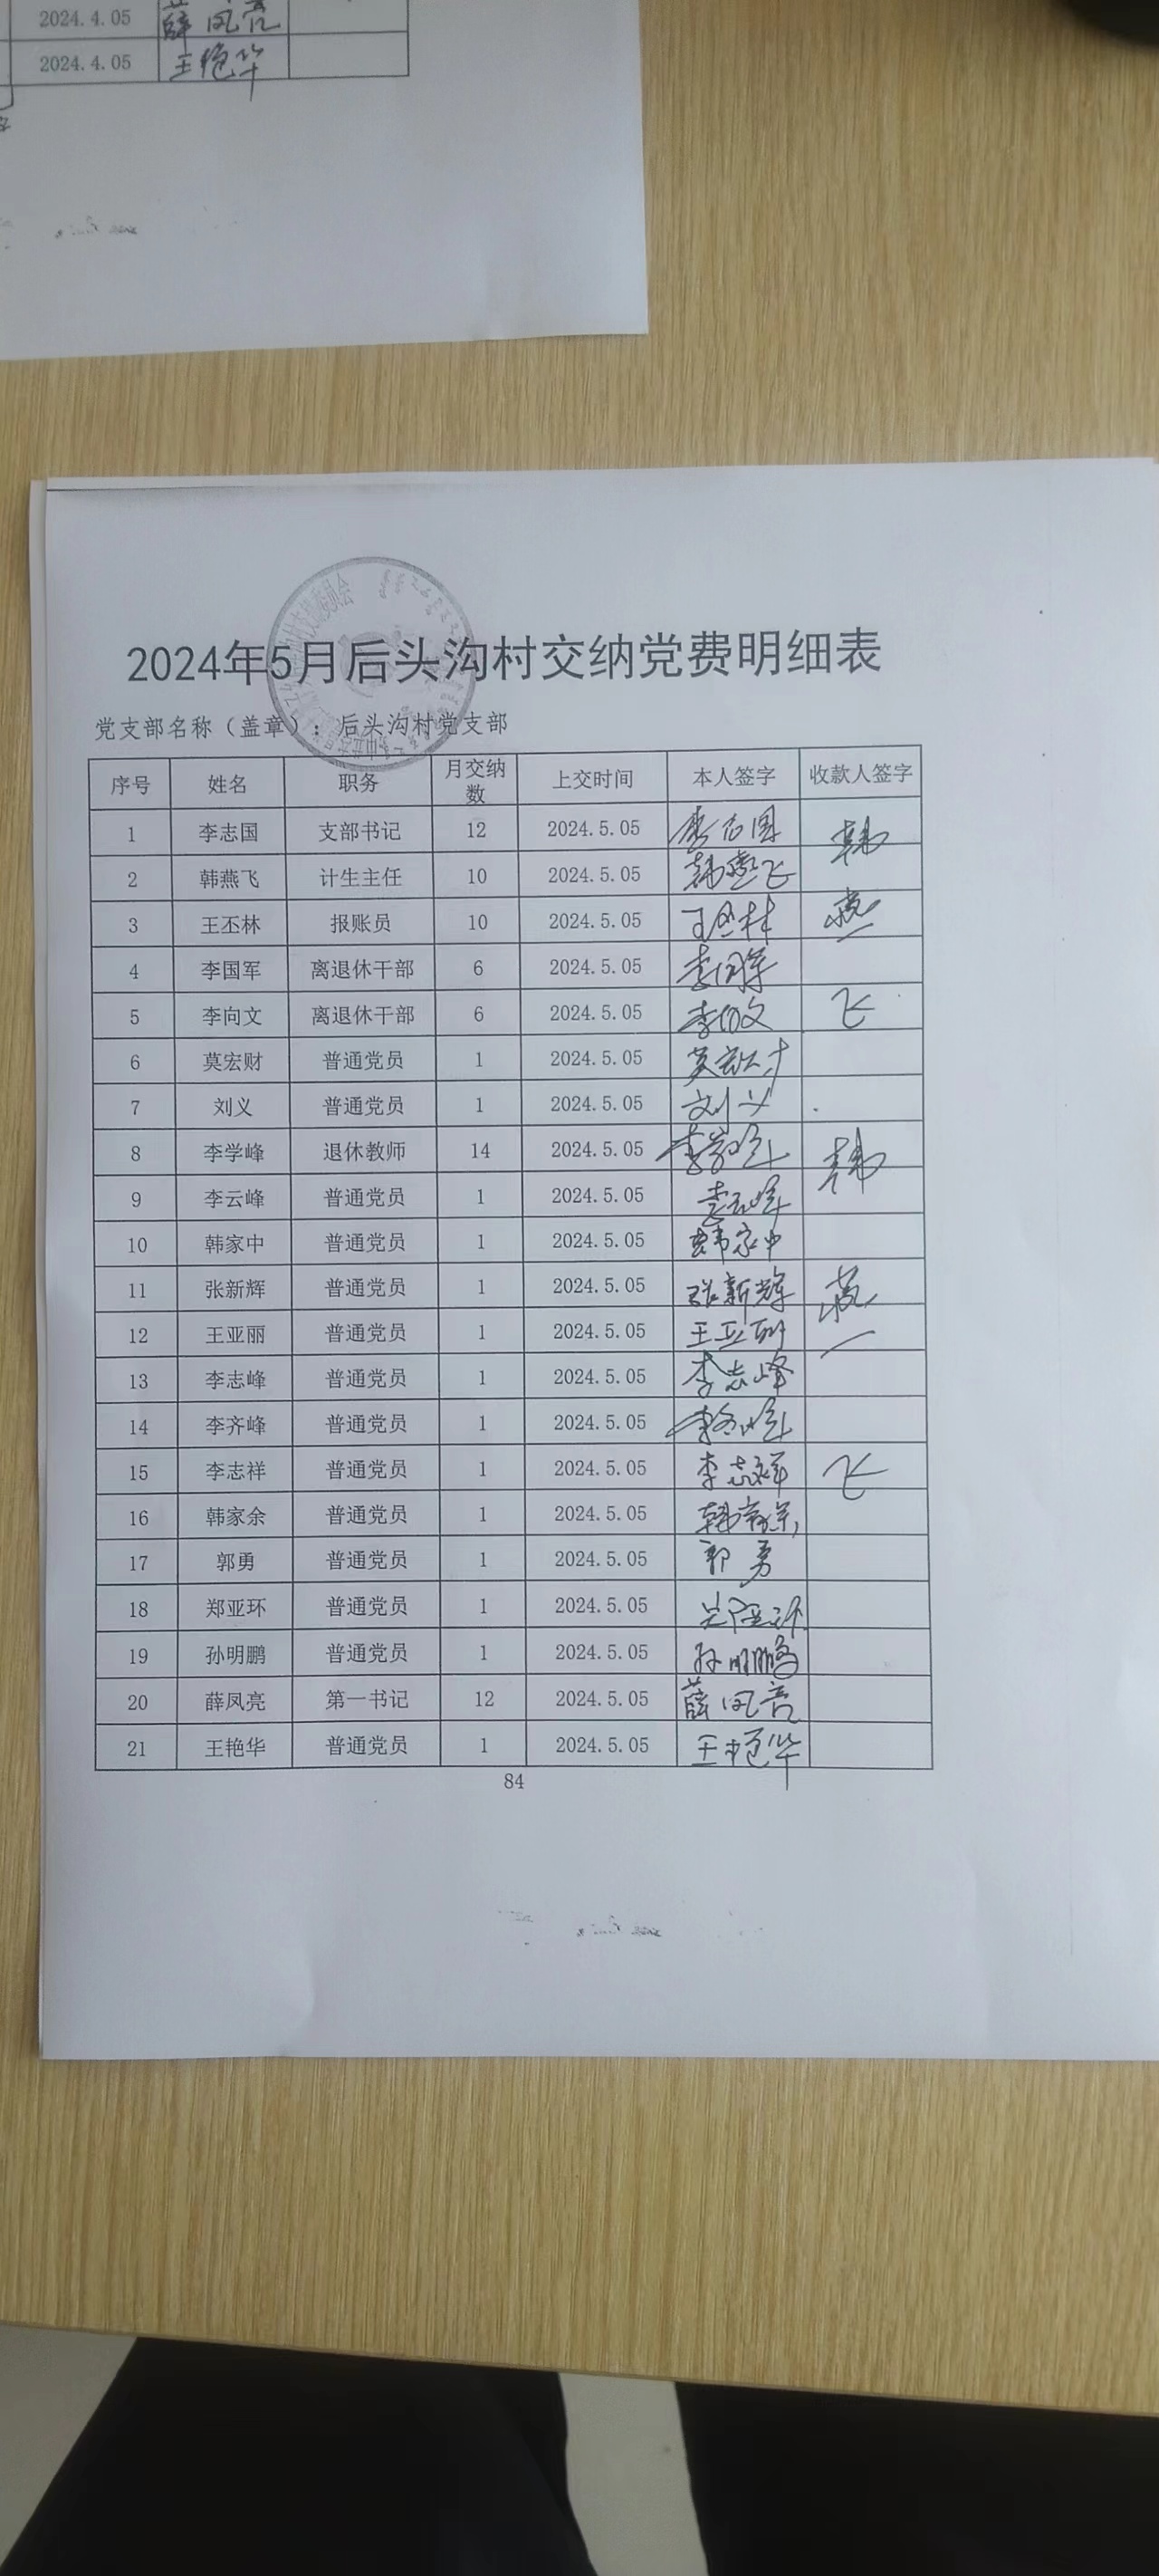 2024.4.05 薛凤亮
2024.4.05 王艳华
2024年5月后头沟村交纳党费明细表
党支部名称（盖章）：后头沟村党支部
序号 姓名 职务 月交纳数 上交时间 本人签字 收款人签字
1 李志国 支部书记 12 2024.5.05 李志国 韩
2 韩燕飞 计生主任 10 2024.5.05 韩燕飞
3 王丕林 报账员 10 2024.5.05 王丕林 燕
4 李国军 离退休干部 6 2024.5.05 李国军
5 李向文 离退休干部 6 2024.5.05 李向文 飞
6 莫宏财 普通党员 1 2024.5.05 莫宏财
7 刘义 普通党员 1 2024.5.05 刘义
8 李学峰 退休教师 14 2024.5.05 李学峰 韩
9 李云峰 普通党员 1 2024.5.05 李云峰
10 韩家中 普通党员 1 2024.5.05 韩家中
11 张新辉 普通党员 1 2024.5.05 张新辉 燕
12 王亚丽 普通党员 1 2024.5.05 王亚丽
13 李志峰 普通党员 1 2024.5.05 李志峰
14 李齐峰 普通党员 1 2024.5.05 李齐峰
15 李志祥 普通党员 1 2024.5.05 李志祥 飞
16 韩家余 普通党员 1 2024.5.05 韩家余
17 郭勇 普通党员 1 2024.5.05 郭勇
18 郑亚环 普通党员 1 2024.5.05 郑亚环
19 孙明鹏 普通党员 1 2024.5.05 孙明鹏
20 薛凤亮 第一书记 12 2024.5.05 薛凤亮
21 王艳华 普通党员 1 2024.5.05 王艳华
84